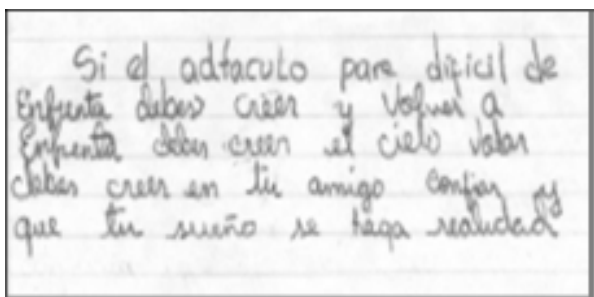 Si el adtaculo pare dificil de
Enfrenta debes creer y Volver a
Enfrenta debes creer el cielo volar
debes creer en tu amigo confiar y
que tu sueño se haga realidad